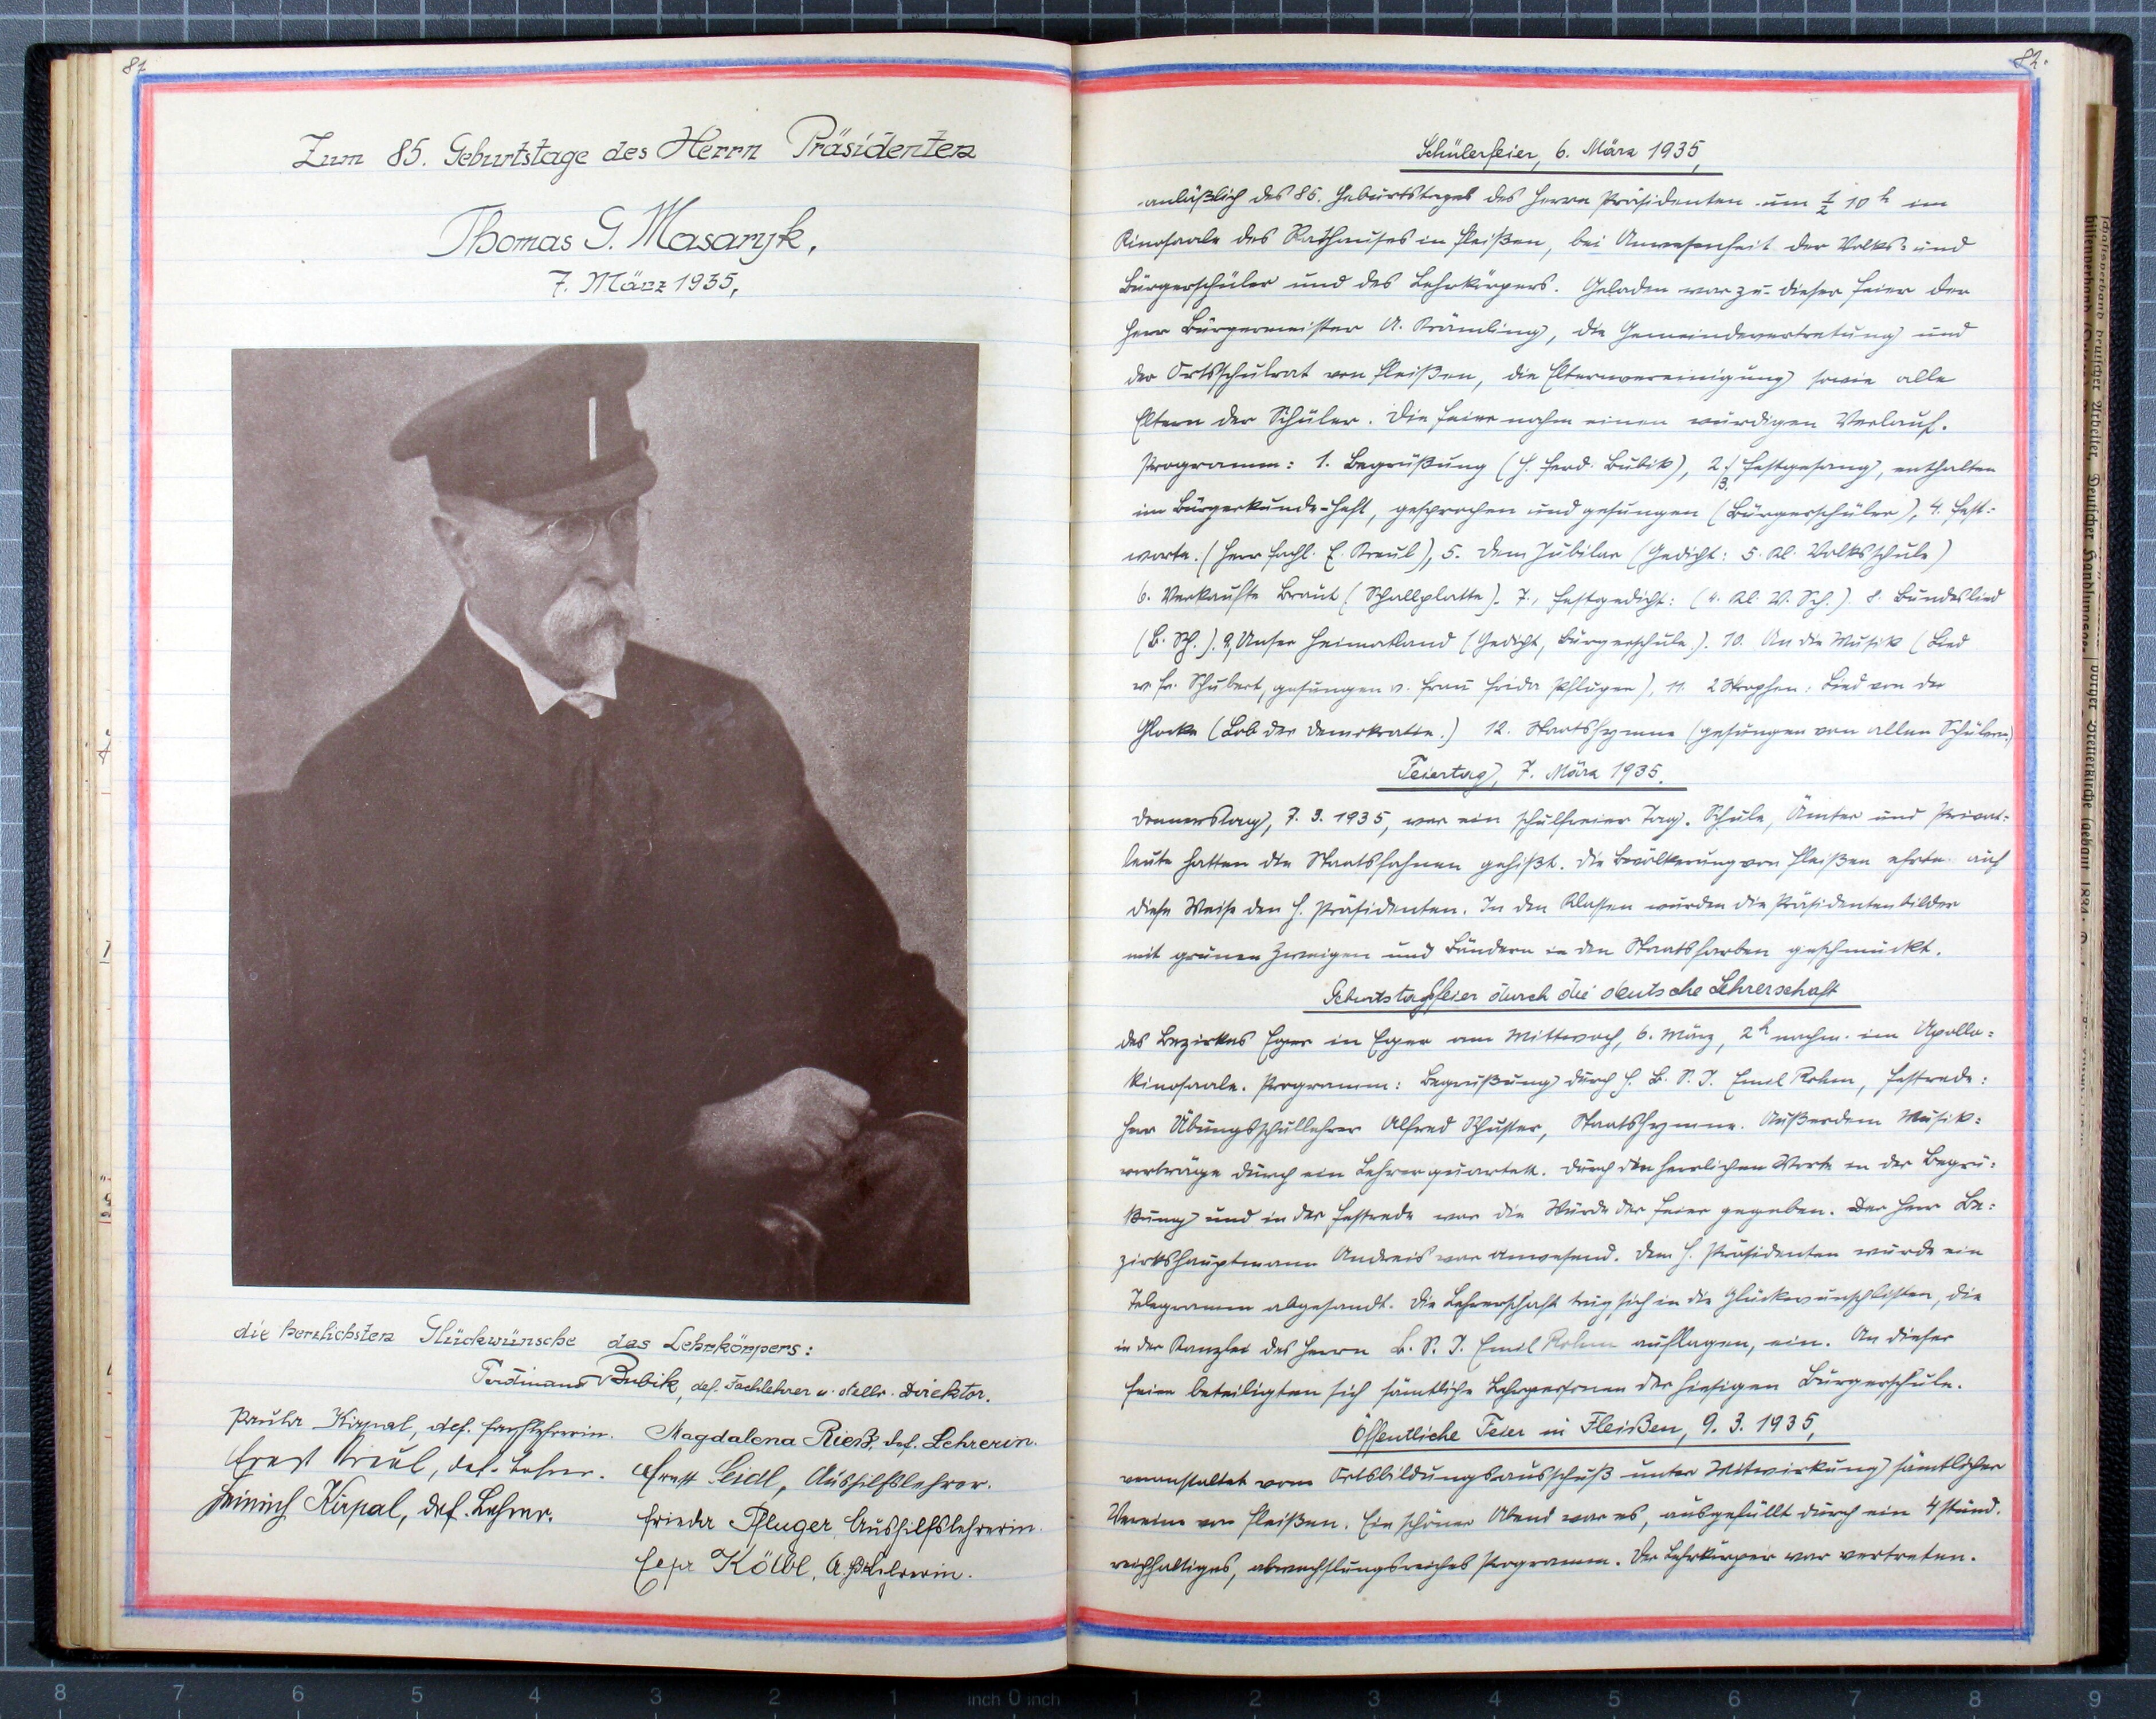 81
Zum 85. Geburtstage des Herrn Präsidenten
Thomas G. Masaryk,
7. März 1935,
die herzlichsten Glückwünsche des Lehrkörpers:
Ferdinand Bubik, def. Fachlehrer u. stellv. Direktor.
Paula Kirpal, def. Fachlehrerin.
Ernst Kreul, def. Lehrer.
Heinrich Kirpal, def. Lehrer.
Magdalena Rieß, def. Lehrerin.
Ernst Seidl, Aushilfslehrer.
Frieda Pfluger, Aushilfslehrerin.
Kölbl, A. H. Lehrerin.
82.
Schülerfeier, 6. März 1935,
anläßlich des 85. Geburtstages des Herrn Präsidenten um ½ 10 h im
Kinosaale des Rathauses in Fleißen, bei Anwesenheit der Volks- und
Bürgerschüler und des Lehrkörpers. Geladen war zu dieser Feier der
Herr Bürgermeister A. Krämling, die Gemeindevertretung und
der Ortsschulrat von Fleißen, die Elternvereinigung sowie alle
Eltern der Schüler. Die Feier nahm einen würdigen Verlauf.
Programm: 1. Begrüßung (H. Ferd. Bubik), 2. / 3. Festgesang, enthalten
im Bürgerkunde-Heft, gesprochen und gesungen (Bürgerschüler), 4. Fest-
worte. (Herr Fachl. E. Kreul), 5. Dem Jubilar (Gedicht: 5. Kl. Volksschule)
6. Verkaufte Braut (Schallplatte). 7., Festgedicht: (4. Kl. V. Sch.). 8. Bundeslied
(B. Sch.). 9, Unser Heimatland (Gedicht, Bürgerschule). 10. An die Musik (Lied
v. Fr. Schubert, gesungen v. Frau Frieda Pfluger), 11. 2 Strophen: Lied von der
Glocke (Lob der Demokratie.) 12. Staatshymne (gesungen von allen Schülern)
Feiertag, 7. März 1935.
Donnerstag, 7. 3. 1935, war ein schulfreier Tag. Schule, Ämter und Privat-
leute hatten die Staatsfahnen gehißt. Die Bevölkerung von Fleißen ehrte auf
diese Weise den H. Präsidenten. In den Klassen wurden die Präsidentenbilder
mit grünen Zweigen und Bändern in den Staatsfarben geschmückt.
Geburtstagsfeier durch die deutsche Lehrerschaft
des Bezirkes Eger in Eger am Mittwoch, 6. März, 2 h nachm. im Apollo-
kinosaale. Programm: Begrüßung durch H. B. S. I. Emil Rohm, Festrede:
Herr Übungsschullehrer Alfred Schuster, Staatshymne. Außerdem Musik-
vorträge durch ein Lehrerquartett. Durch die herrlichen Worte in der Begrü-
ßung und in der Festrede war die Würde der Feier gegeben. Der Herr Be-
zirkshauptmann Andreis war anwesend. Dem H. Präsidenten wurde ein
Telegramm abgesandt. Die Lehrerschaft trug sich in die Glückwunschlisten, die
in der Kanzlei des Herrn B. S. I. Emil Rohm auflagen, ein. An dieser
Feier beteiligten sich sämtliche Lehrpersonen der hiesigen Bürgerschule.
Öffentliche Feier in Fleißen, 9. 3. 1935,
veranstaltet vom Ortsbildungsausschuß unter Mitwirkung sämtlicher
Vereine von Fleißen. Ein schöner Abend war es, ausgefüllt durch ein 4 stünd.
reichhaltiges, abwechslungsreiches Programm. Der Lehrkörper war vertreten.
8 7 6 5 4 3 2 1 inch 0 inch 1 2 3 4 5 6 7 8 9